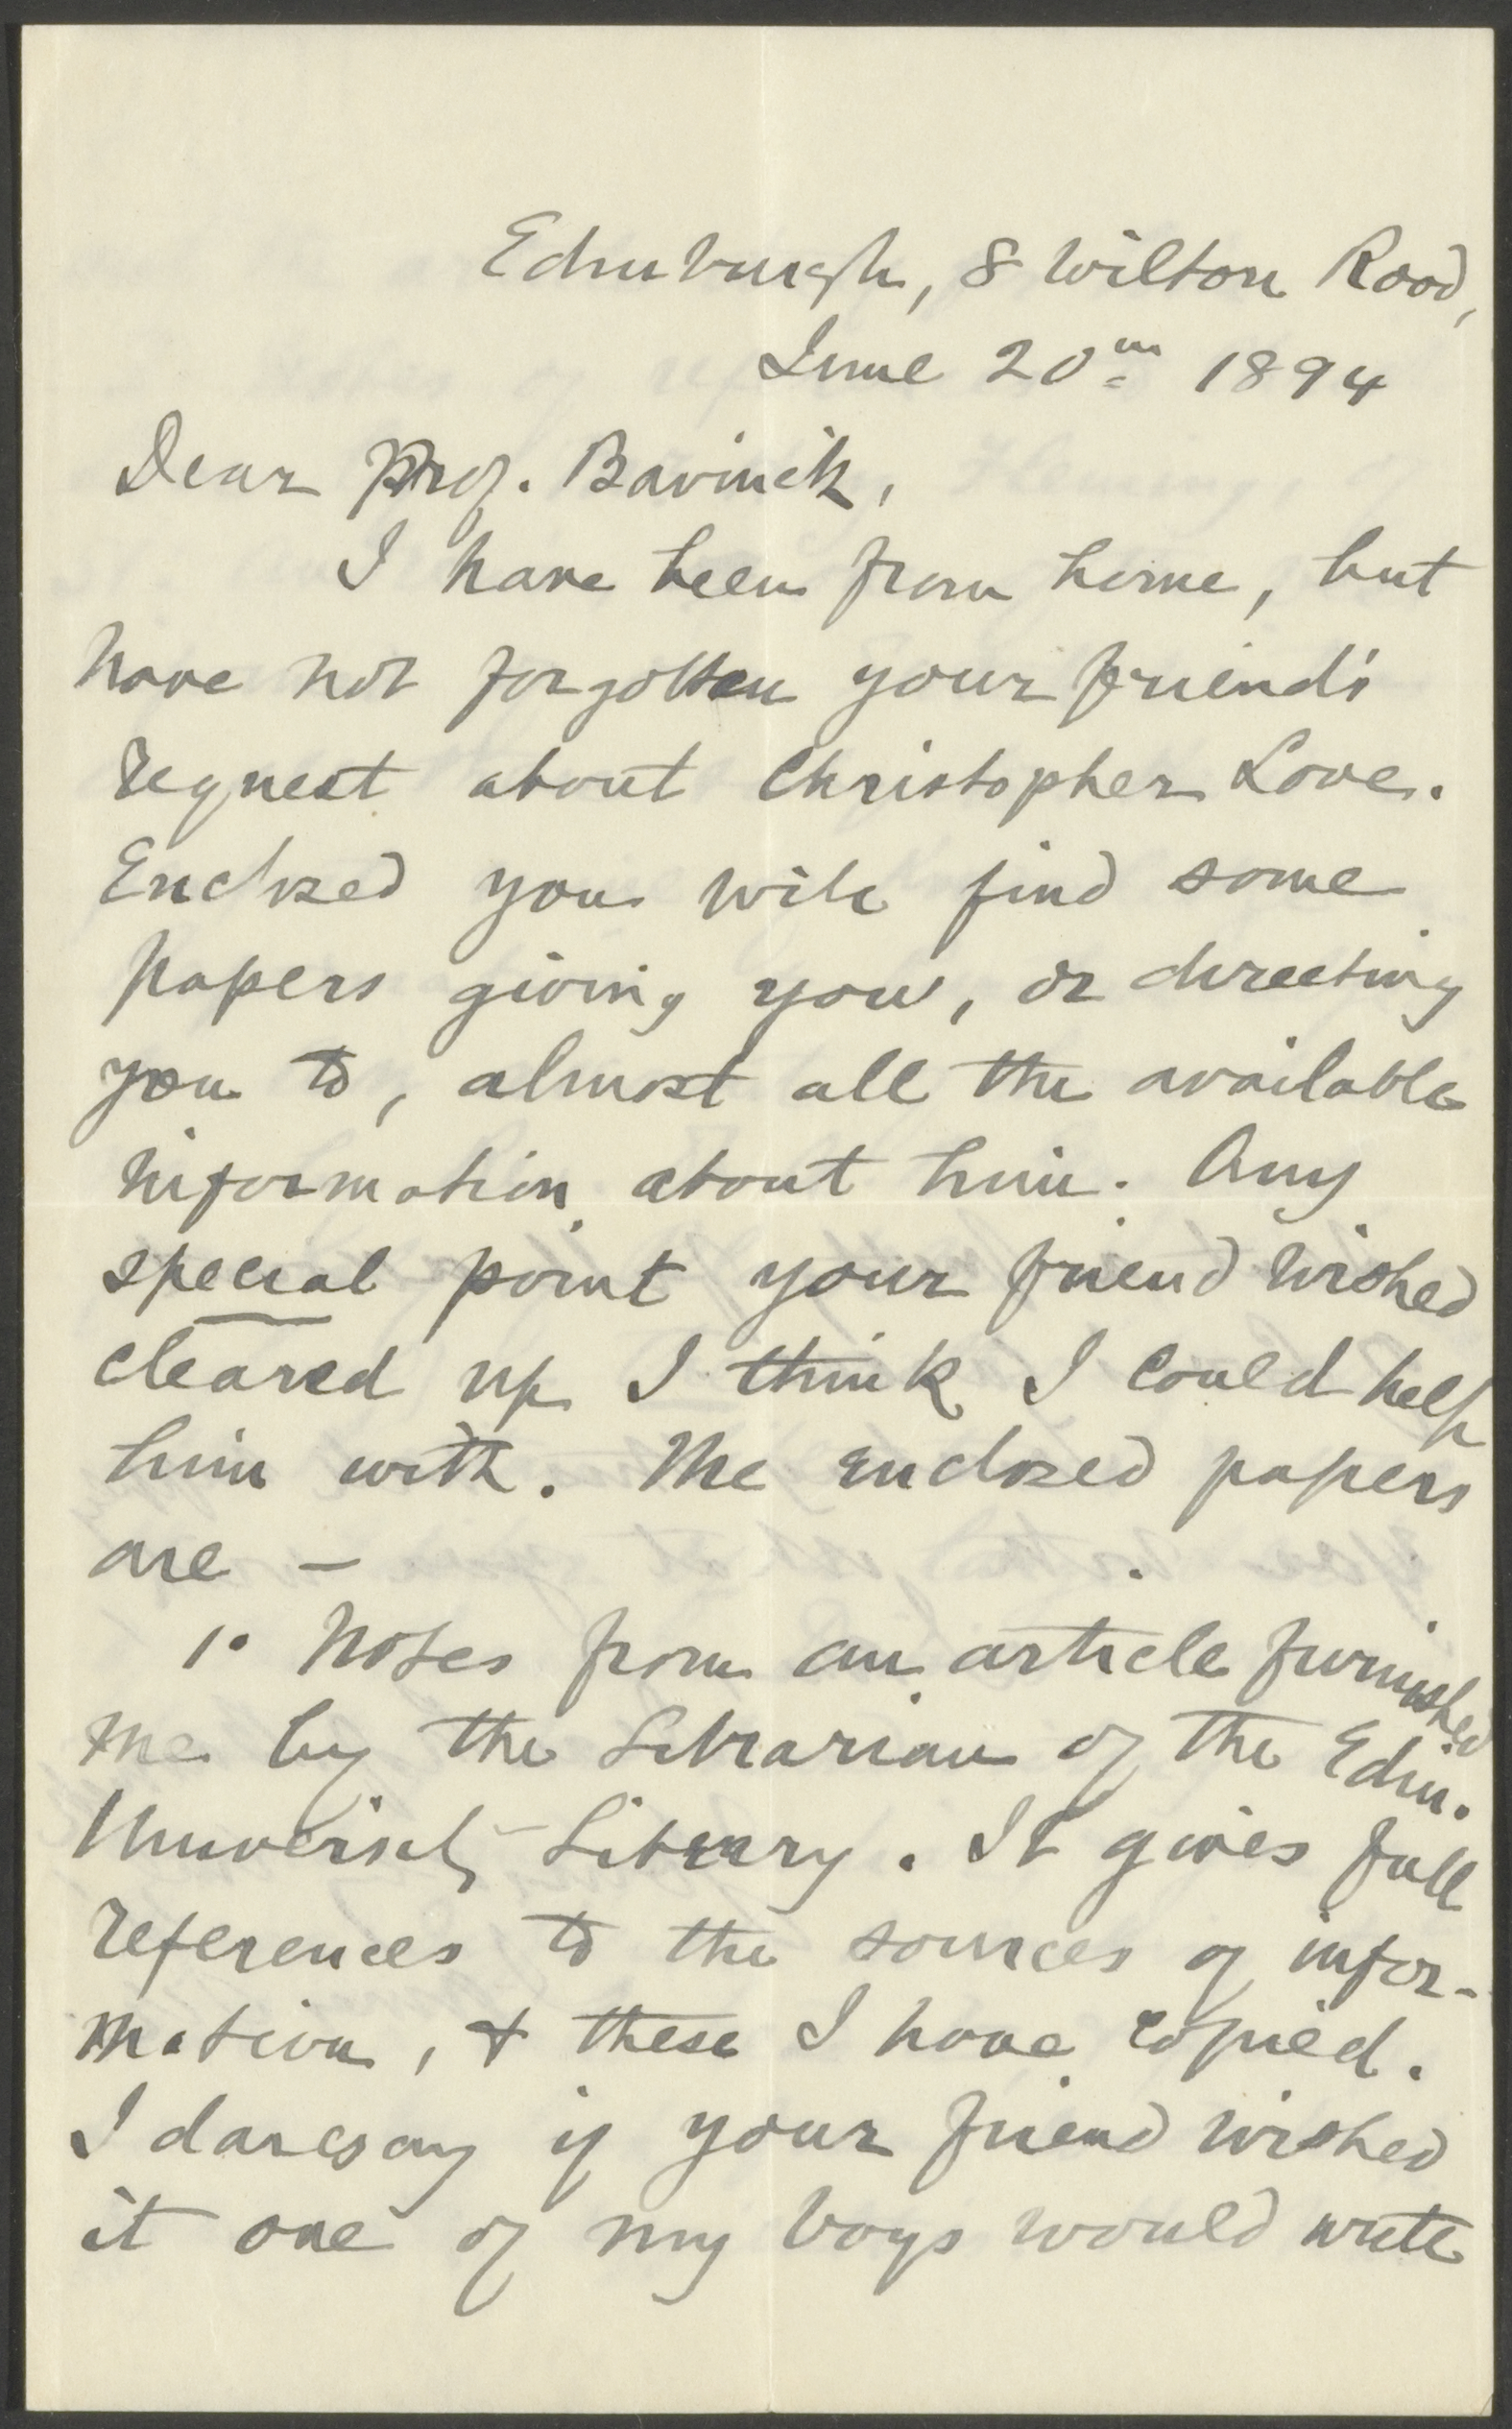 Edinburgh, 8 Wilton Road,
June 20th 1894
Dear Prof. Bavinck,
I have been from home, but
have not forgotten your friend's
request about Christopher Love.
Enclosed you will find some
papers giving you, or directing
you to, almost all the available
information about him. Any
special point your friend wished
cleared up I think I could help
him with. The enclosed papers
are -
1. Notes from an article furnished
me by the Librarian of the Edin.
University Library. It gives full
references to the sources of infor-
mation, & these I have copied.
I daresay if your friend wished
it one of my boys would write